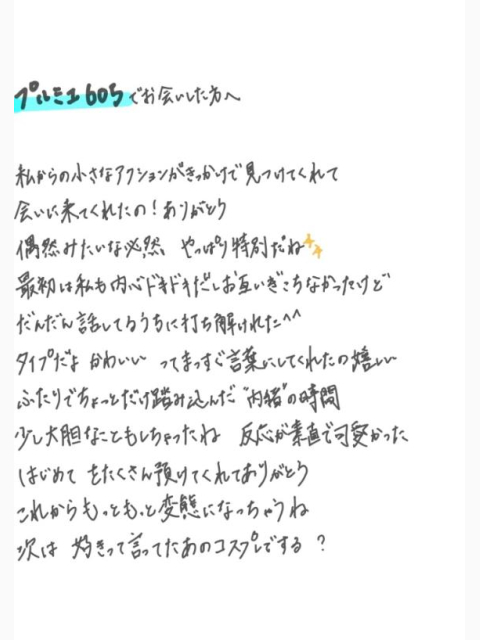 プルミエ605でお会いした方へ
私からの小さなアクションがきっかけで見つけてくれて
会いに来てくれたの！ありがとう
偶然みたいな必然 やっぱり特別だね
最初は私も内心ドキドキだしお互いぎこちなかったけど
だんだん話してるうちに打ち解けれた^^
タイプだよ かわいい ってまっすぐ言葉にしてくれたの嬉しい
ふたりでちょっとだけ踏み込んだ"内緒"の時間
少し大胆なこともしちゃったね 反応が素直で可愛かった
はじめて をたくさん預けてくれてありがとう
これからもっともっと変態になっちゃうね
次は 好きって言ってたあのコスプレでする ?